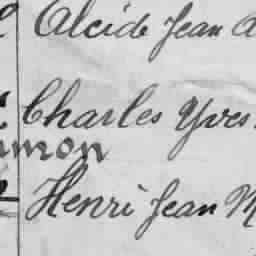 Alcide Jean A
Charles Yves
Henri Jean M